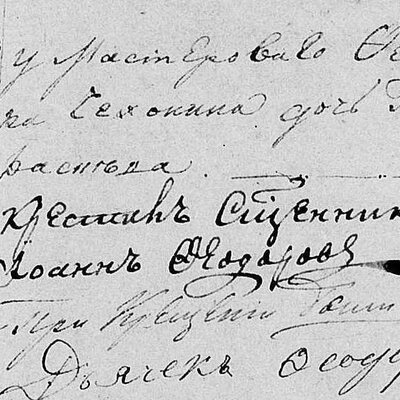 у Мастероваго Ѳе
ка Чехонина дочь П
раскѣва
Крестилъ Сщенник
Іоаннъ Ѳеодоровъ
При Крещеніи были
Дьячекъ Ѳеодо